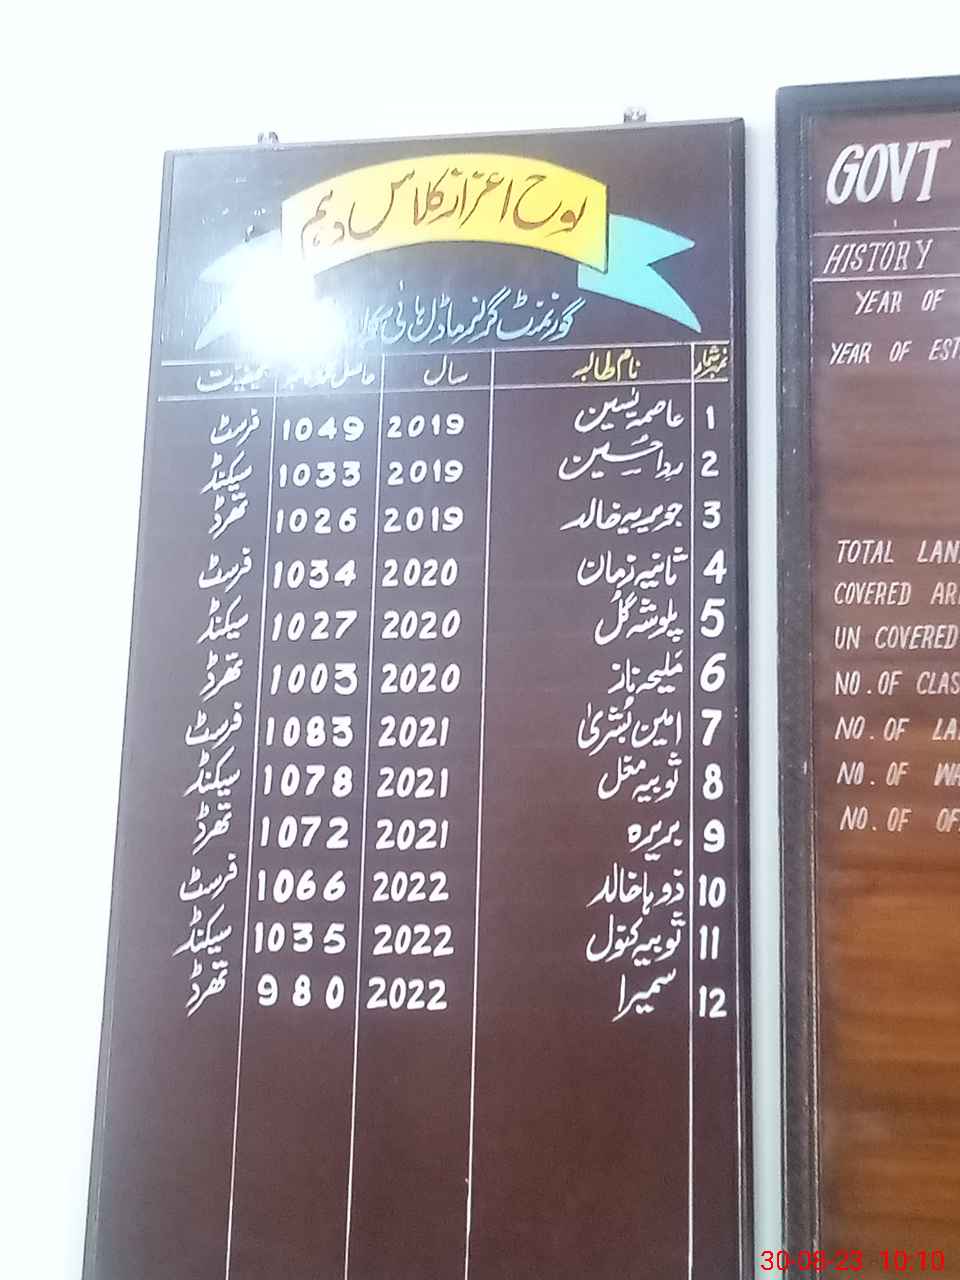 لوح اعزاز کلاس دہم
گورنمنٹ گرلز ماڈل ہائی
نمبر شمار نام طالبہ سال حاصل
1 عاصمہ یٰسین 2019 1049 فرسٹ
2 ردا حسین 2019 1033 سیکنڈ
3 جویریہ خالد 2019 1026 تھرڈ
4 ثانیہ زمان 2020 1034 فرسٹ
5 پلوشہ گل 2020 1027 سیکنڈ
6 ملیحہ ناز 2020 1003 تھرڈ
7 امین بشریٰ 2021 1083 فرسٹ
8 ثوبیہ مغل 2021 1078 سیکنڈ
9 بریرہ 2021 1072 تھرڈ
10 ذوہا خالد 2022 1066 فرسٹ
11 ثوبیہ کنول 2022 1035 سیکنڈ
12 سمیرا 2022 980 تھرڈ
GOVT
HISTORY
YEAR OF
YEAR OF EST
TOTAL LAN
COVERED AR
UN COVERED
NO. OF CLAS
NO. OF LA
NO. OF WA
NO. OF OF
30-08-23 10:10